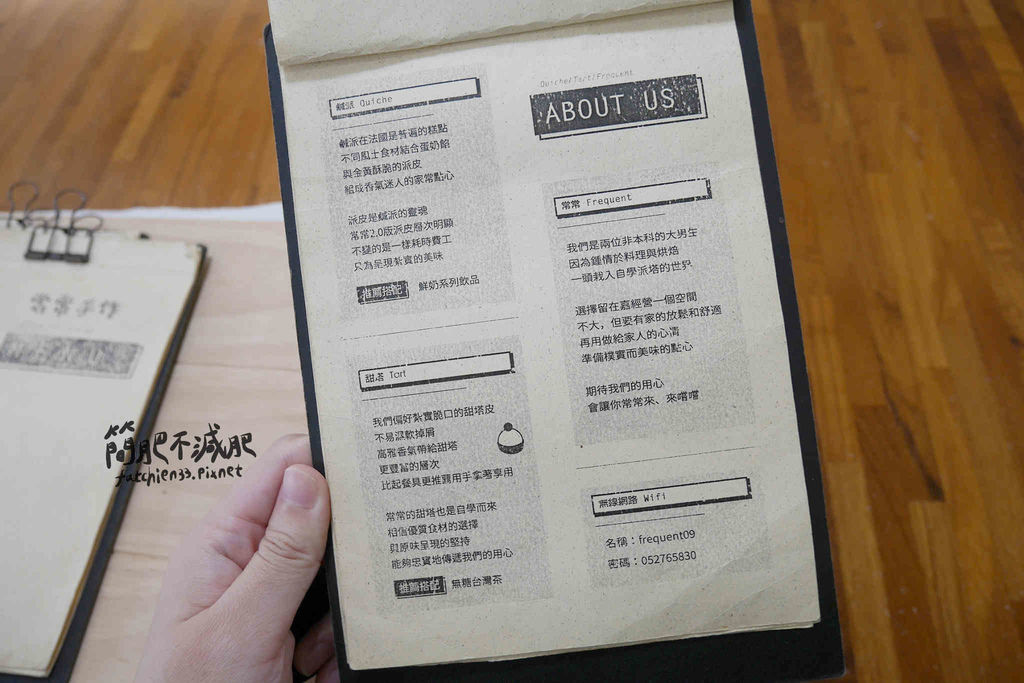 鹹派 Quiche
鹹派在法國是普遍的糕點
不同風土食材結合蛋奶餡
與金黃酥脆的派皮
組成香氣迷人的家常點心
派皮是鹹派的靈魂
常常2.0版派皮層次明顯
不變的是一樣耗時費工
只為呈現紮實的美味
推薦搭配 鮮奶系列飲品
甜塔 Tart
我們偏好紮實脆口的甜塔皮
不易濕軟掉屑
高雅香氣帶給甜塔
更豐富的層次
比起餐具更推薦用手拿著享用
常常的甜塔也是自學而來
相信優質食材的選擇
與原味呈現的堅持
能夠忠實地傳遞我們的用心
推薦搭配 無糖台灣茶
Quiche/Tart/Frequent
ABOUT US
常常 Frequent
我們是兩位非本科的大男生
因為鍾情於料理與烘焙
一頭栽入自學派塔的世界
選擇留在嘉經營一個空間
不大，但要有家的放鬆和舒適
再用做給家人的心情
準備樸實而美味的點心
期待我們的用心
會讓你常常來、來嚐嚐
無線網路 Wifi
名稱：frequent09
密碼：052765830
常常手作
簡肥不減肥
fatchien33.pixnet